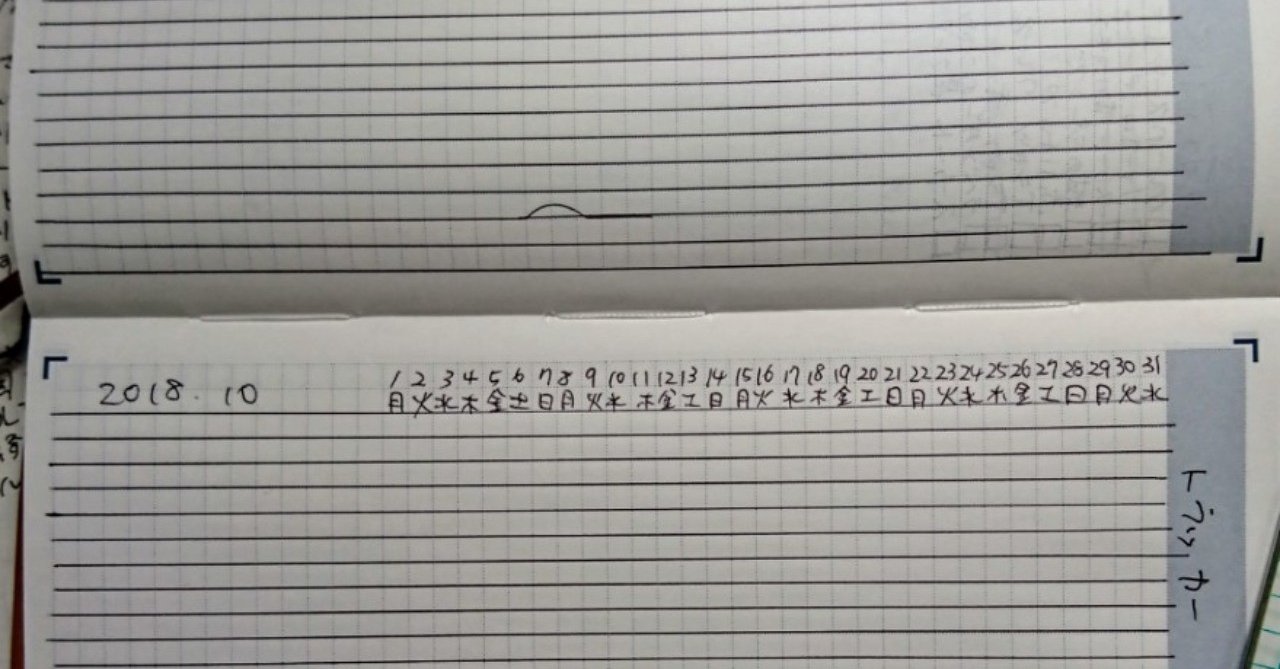 2018.10
1 2 3 4 5 6 7 8 9 10 11 12 13 14 15 16 17 18 19 20 21 22 23 24 25 26 27 28 29 30 31
月 火 水 木 金 土 日 月 火 水 木 金 工 日 月 火 水 木 金 工 日 月 火 水 木 金 工 日 月 火 水
トラッカー